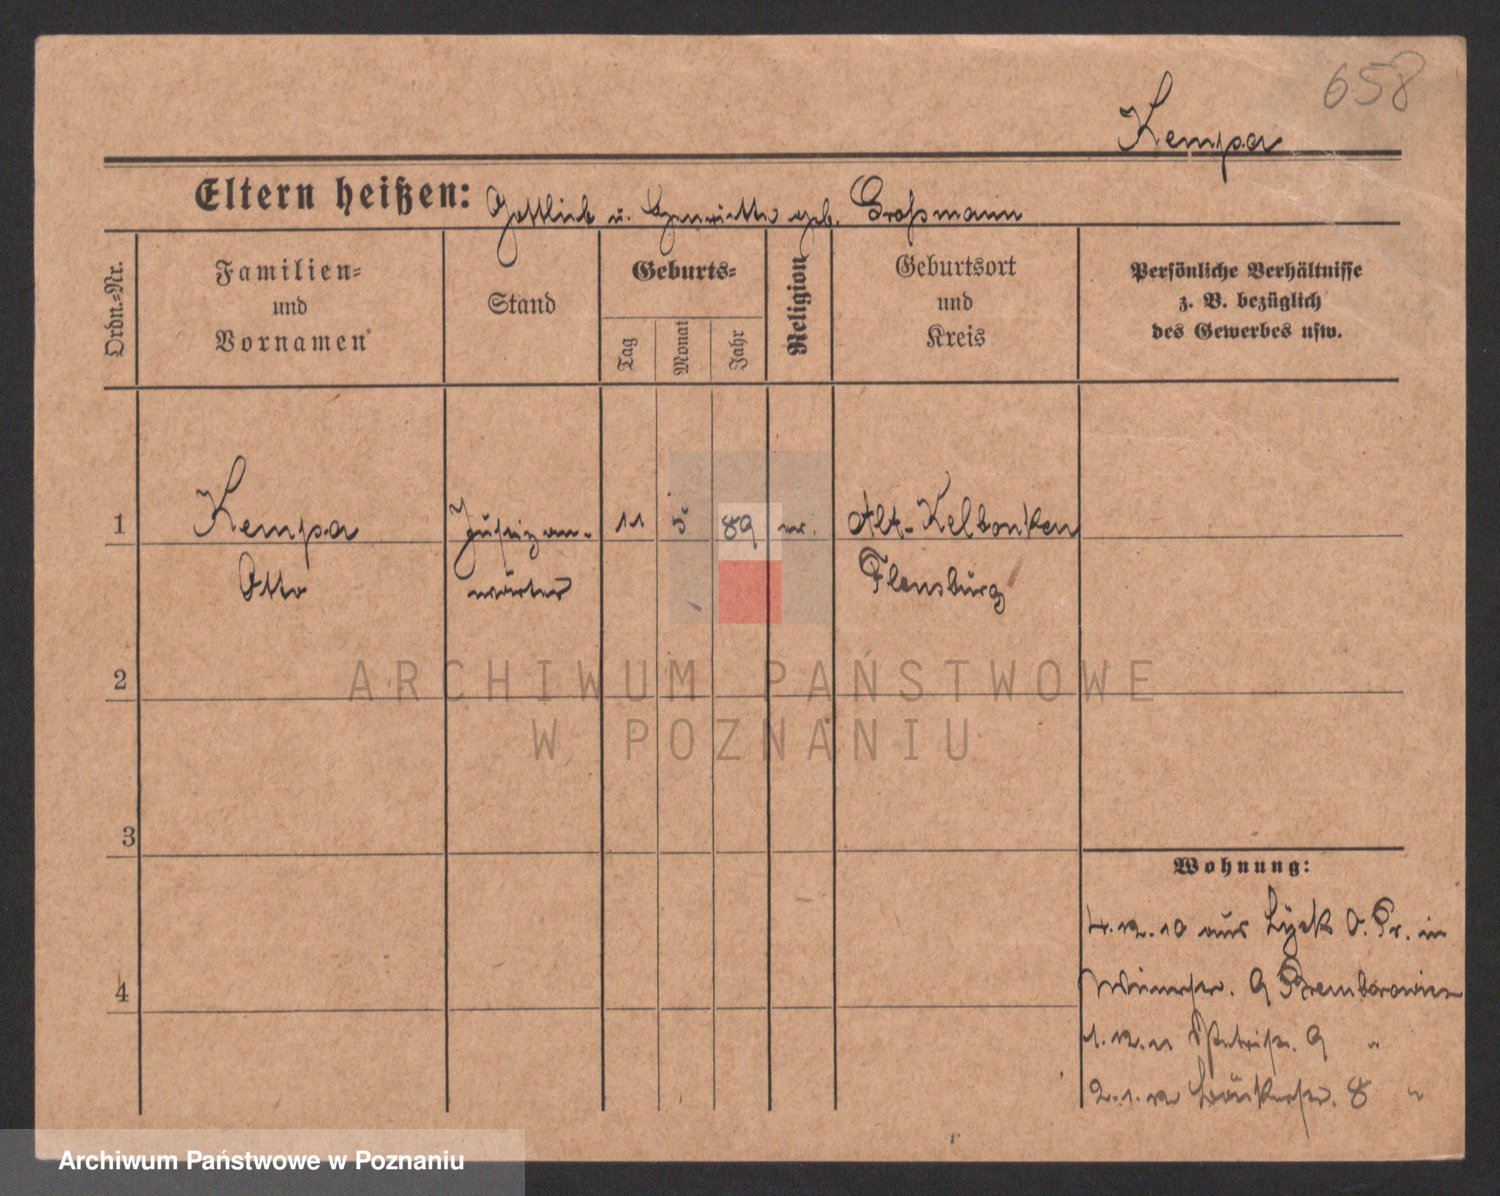 658
Kempa
Eltern heißen: Gottlieb u. Henriette geb. Großmann
Ordn.-Nr.
Familien-
und
Vornamen
Stand
Geburts-
Tag
Monat
Jahr
Religion
Geburtsort
und
Kreis
Persönliche Verhältnisse
z. B. bezüglich
des Gewerbes usw.
1 Kempa Justizan- 11 5. 89 ev. Alt-Kelbonken
Otto wärter Flensburg
2
3
4
Wohnung:
4.12.10 aus Lyck O. Pr. in
9
1.12.11 9 "
2.1.12 Bäckerstr. 8 "
ARCHIWUM PAŃSTWOWE
W POZNANIU
Archiwum Państwowe w Poznaniu